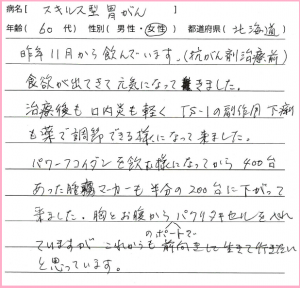 病名［ スキルス型胃がん ］
年齢（ 60 代） 性別（ 男性・女性） 都道府県（ 北海道 ）
昨年11月から飲んでいます。（抗がん剤治療前）
食欲が出てきて元気になってきました。
治療後も口内炎も軽く TS-1の副作用下痢
も薬で調節できる様になって来ました。
パワーフコイダンを飲む様になってから 400台
あった腫瘍マーカーも半分の200台に下がって
来ました。胸とお腹からパクリタキセルを入れ
のポートで
ていますが これからも前向きして生きて行きたい
と思っています。